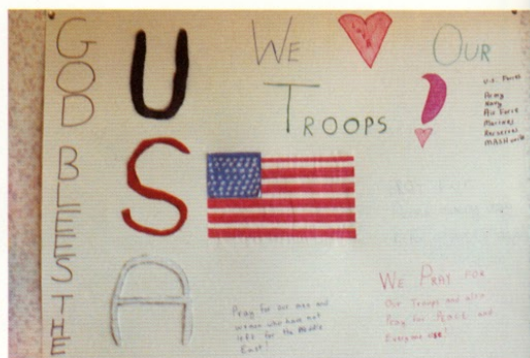 GOD BLESS THE
USA
WE Love OUR
TROOPS
U.S. Forces
Army
Navy
Air Force
Marines
Reserves
MASH units
Pray for our men and
women who have not
left for the Middle
East!
WE PRAY FOR
Our Troops and also
Pray for PEACE and
Everyone